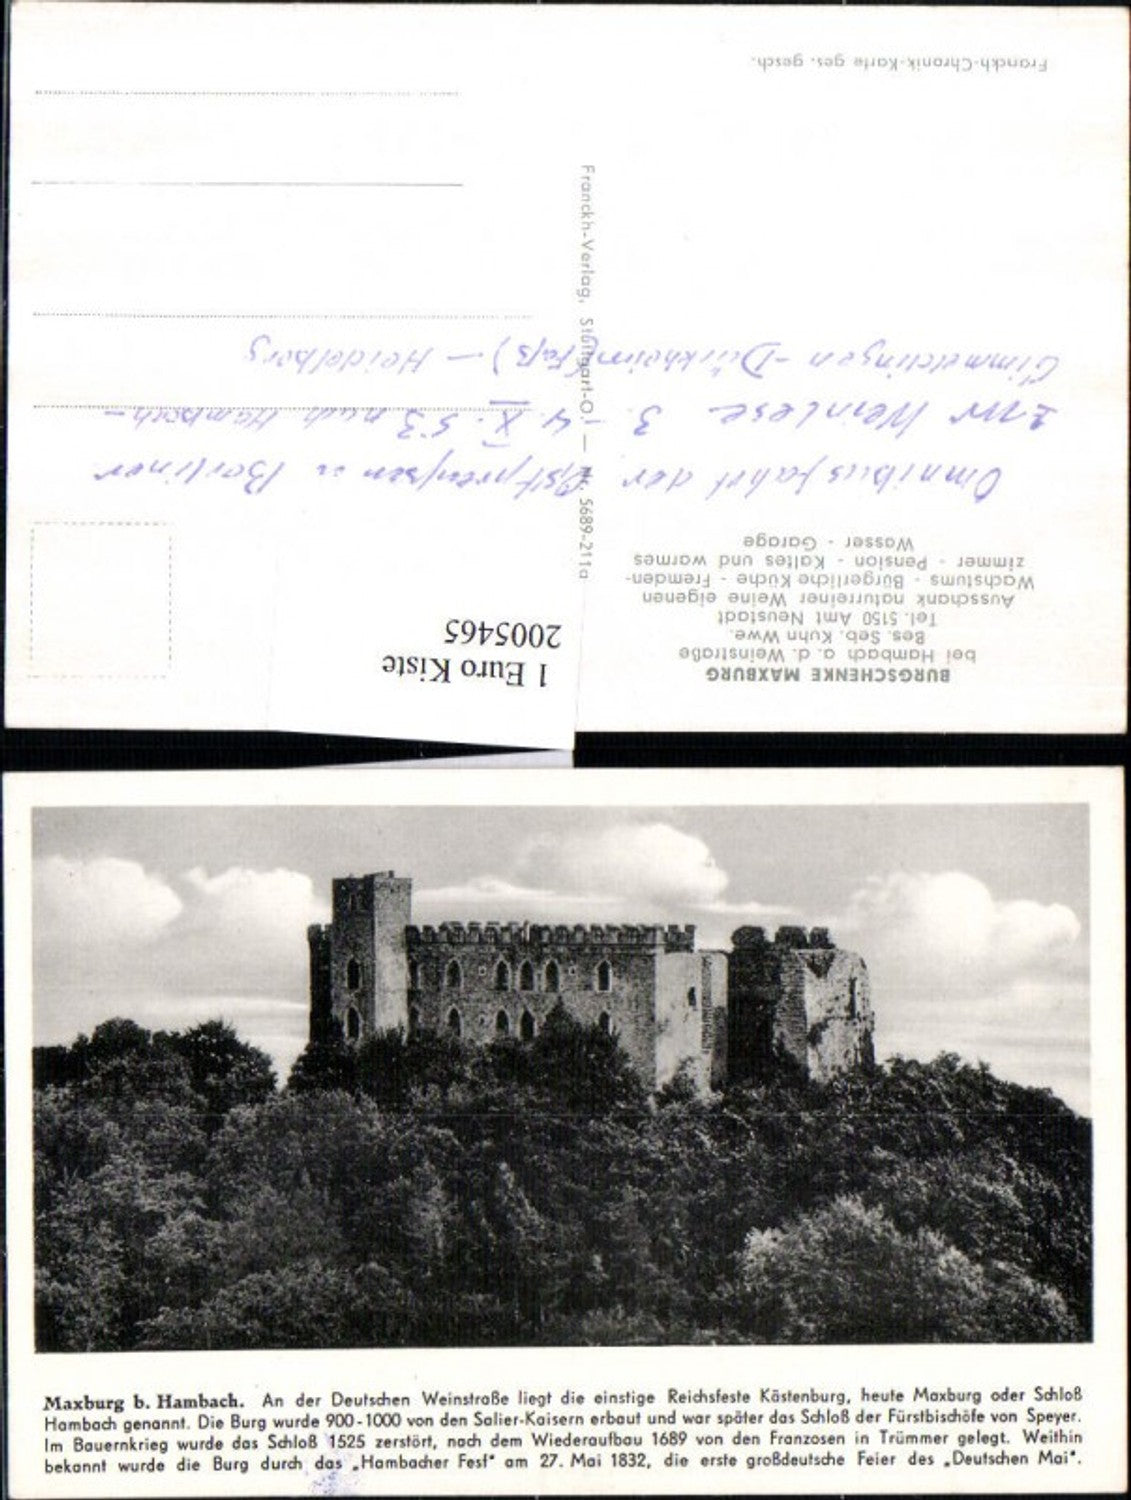 BURGSCHENKE MAXBURG
bei Hambach a. d. Weinstraße
Bes. Seb. Kuhn Wwe.
Tel. 5150 Amt Neustadt
Ausschank naturreiner Weine eigenen
Wachstums - Bürgerliche Küche - Fremden-
zimmer - Pension - Kaltes und warmes
Wasser - Garage
1 Euro Kiste
2005465
Omnibusfahrt der Ostpreußen u Berliner
zur Weinlese 3. - 4. X. 53 nach Hambach -
Gimmeldingen - Dürkheim (Faß) - Heidelberg
Franckh-Chronik-Karte ges. gesch.
Franckh-Verlag, Stuttgart-O. — Nr. 5689-211a
Maxburg b. Hambach. An der Deutschen Weinstraße liegt die einstige Reichsfeste Kästenburg, heute Maxburg oder Schloß
Hambach genannt. Die Burg wurde 900-1000 von den Salier-Kaisern erbaut und war später das Schloß der Fürstbischöfe von Speyer.
Im Bauernkrieg wurde das Schloß 1525 zerstört, nach dem Wiederaufbau 1689 von den Franzosen in Trümmer gelegt. Weithin
bekannt wurde die Burg durch das „Hambacher Fest" am 27. Mai 1832, die erste großdeutsche Feier des „Deutschen Mai".